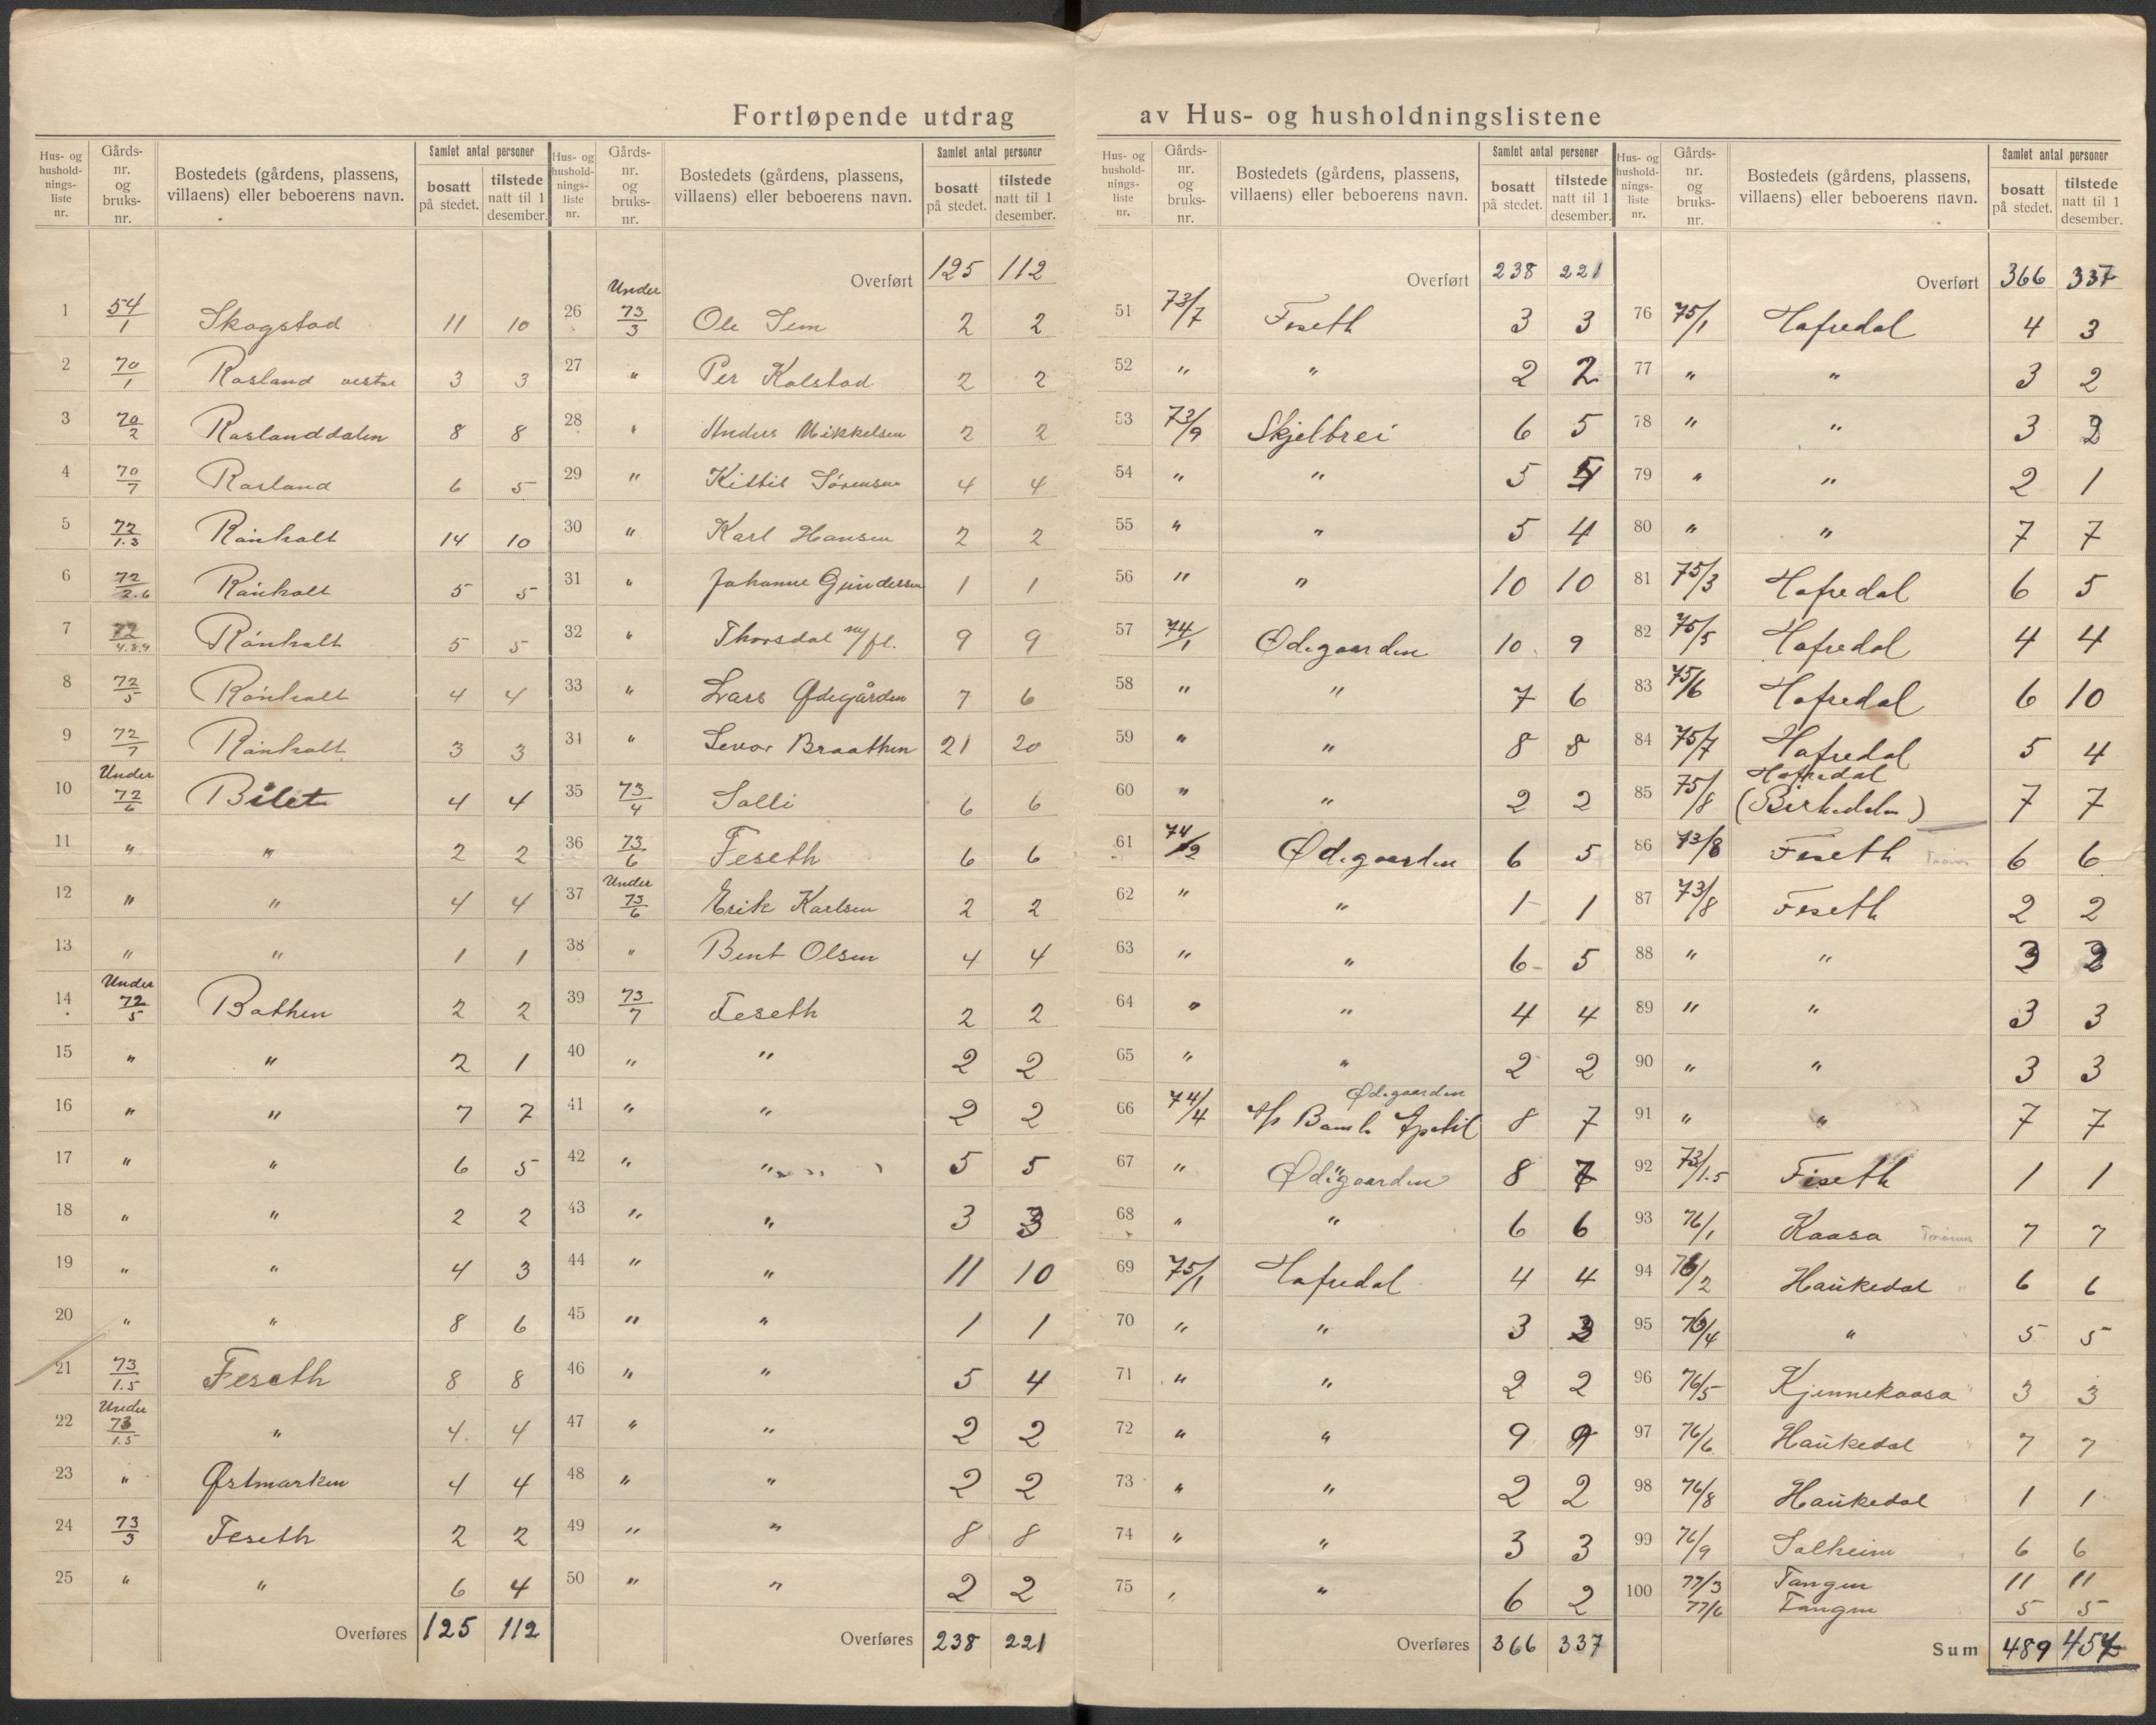 Fortløpende utdrag av Hus- og husholdningslistene
Hus- og husholdnings-liste nr. Gårds-nr. og bruks-nr. Bostedets (gårdens, plassens, villaens) eller beboerens navn. Samlet antal personer bosatt på stedet. tilstede natt til 1 desember.
1 54/1 Skogstad 11 10
2 70/1 Rosland vestre 3 3
3 70/2 Roslanddalen 8 8
4 70/7 Rosland 6 5
5 72/1.3 Rånholt 14 10
6 72/2.6 Rånholt 5 5
7 72/4.8.9 Rånholt 5 5
8 72/5 Rånholt 4 4
9 72/7 Rånholt 3 3
10 Under 72/6 Bilet 4 4
11 " " 2 2
12 " " 4 4
13 " " 1 1
14 Under 72/5 Bothen 2 2
15 " " 2 1
16 " " 7 7
17 " " 6 5
18 " " 2 2
19 " " 4 3
20 " " 8 6
21 73/1.5 Feseth 8 8
22 Under 73/1.5 " 4 4
23 " Østmarken 4 4
24 73/3 Feseth 2 2
25 " " 6 4
Overføres 125 112
Hus- og husholdnings-liste nr. Gårds-nr. og bruks-nr. Bostedets (gårdens, plassens, villaens) eller beboerens navn. Samlet antal personer bosatt på stedet. tilstede natt til 1 desember.
Overført 125 112
26 Under 73/3 Ole Sem 2 2
27 " Per Kolstad 2 2
28 " Anders Mikkelsen 2 2
29 " Kittil Sørensen 4 4
30 " Karl Hansen 2 2
31 " Johanne Gundersen 1 1
32 " Thorsdal 9 9
33 " Lars Ødegården 7 6
34 " Levor Braathen 21 20
35 73/4 Solli 6 6
36 73/6 Feseth 6 6
37 Under 73/6 Erik Karlsen 2 2
38 " Bent Olsen 4 4
39 73/7 Feseth 2 2
40 " " 2 2
41 " " 2 2
42 " " 5 5
43 " " 3 3
44 " " 11 10
45 " " 1 1
46 " " 5 4
47 " " 2 2
48 " " 2 2
49 " " 8 8
50 " " 2 2
Overføres 238 221
Hus- og husholdnings-liste nr. Gårds-nr. og bruks-nr. Bostedets (gårdens, plassens, villaens) eller beboerens navn. Samlet antal personer bosatt på stedet. tilstede natt til 1 desember.
Overført 238 221
51 73/7 Feseth 3 3
52 " " 2 2
53 73/9 Skjelbrei 6 5
54 " " 5
55 " " 5 4
56 " " 10 10
57 74/1 Ødegaarden 10 9
58 " " 7 6
59 " " 8 8
60 " " 2 2
61 74/2 Ødegaarden 6 5
62 " " 1 1
63 " " 6 5
64 " " 4 4
65 " " 2 2
Ødegaarden
66 74/4 A/s Bamle Apatit 8 7
67 " Ødegaarden 8 7
68 " " 6 6
69 75/1 Hafredal 4 4
70 " " 3 3
71 " " 2 2
72 " " 9 9
73 " " 2 2
74 " " 3 3
75 " " 6 2
Overføres 366 337
Hus- og husholdnings-liste nr. Gårds-nr. og bruks-nr. Bostedets (gårdens, plassens, villaens) eller beboerens navn. Samlet antal personer bosatt på stedet. tilstede natt til 1 desember.
Overført 366 337
76 75/1 Hafredal 4 3
77 " " 3 2
78 " " 3 2
79 " " 2 1
80 " " 7 7
81 75/3 Hafredal 6 5
82 75/5 Hafredal 4 4
83 75/6 Hafredal 6 10
84 75/7 Hafredal 5 4
Hafredal
85 75/8 (Birkedalen) 7 7
86 73/8 Feseth 6 6
87 73/8 Feseth 2 2
88 " " 3 2
89 " " 3 3
90 " " 3 3
91 " " 7 7
92 73/1.5 Feseth 1 1
93 76/1 Kaasa 7 7
94 76/2 Haukedal 6 6
95 76/4 " 5 5
96 76/5 Kjennekaasa 3 3
97 76/6 Haukedal 7 7
98 76/8 Haukedal 1 1
99 76/9 Solheim 6 6
100 77/3 Tangen 11 11
77/6 Tangen 5 5
Sum 489 457